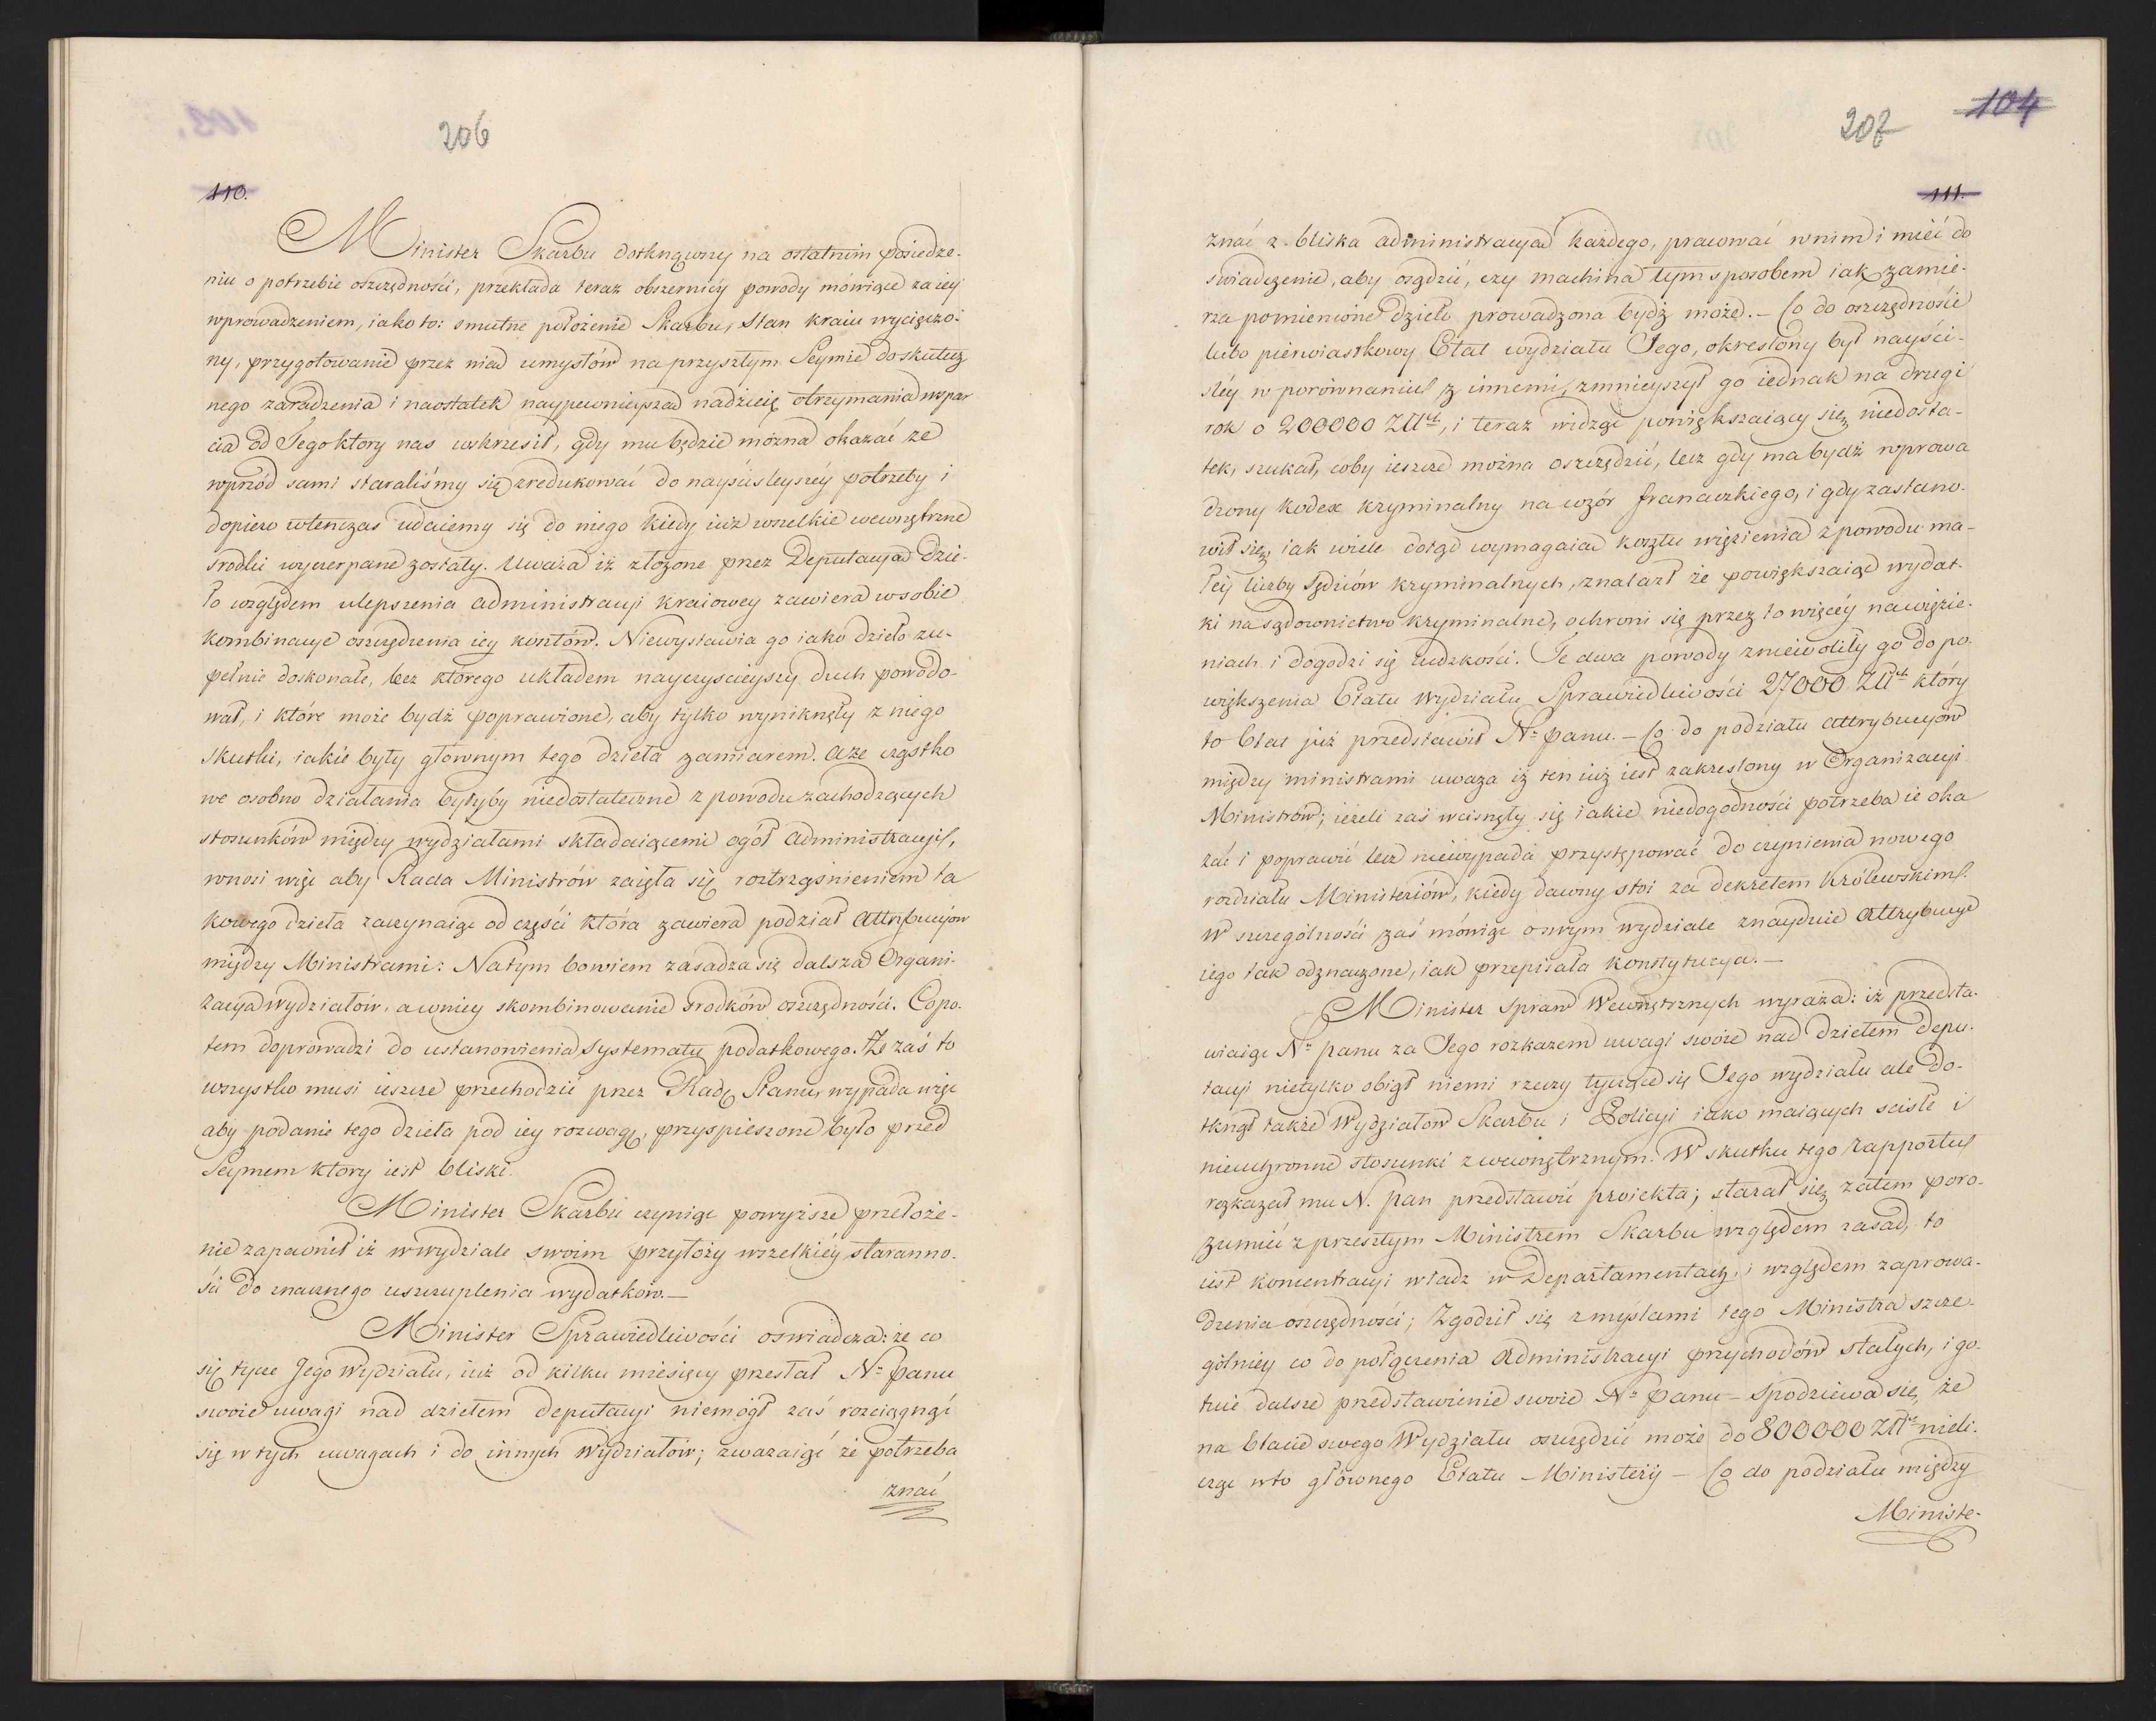 206
110.
Minister Skarbu dotknąwszy na ostatnim posiedze-
niu o potrzebie oszczędności, przekłada teraz obszerniey powody mówiące za iey
wprowadzeniem, iako to: smutne położenie Skarbu, Stan kraiu wycieńczo-
ny, przygotowanie przez nie umysłów na przyszłym Seymie do skutecz
nego zaradzenia i naostatek naypewnieysza nadzieię otrzymania wspar
cia od Tego ktory nas wskrzesił, gdy mu będzie można okazać że
wprzód sami staraliśmy się zredukować do nayściśleyszéy potrzeby i
dopiero wtenczas udaiemy się do niego kiedy iuż wszelkie wewnętrzne
środki wyczerpane zostały. Uważa iż złożone przez Deputacyą Dzie-
ło względem ulepszenia administracyi kraiowey zawiera w sobie
kombinacye oszczędzenia iey kosztów. Niewystawia go iako dzieło zu-
pełnie doskonałe, lecz którego układem nayczyścieyszy duch powodo-
wał, i które może bydź poprawione, aby tylko wyniknęły z niego
skutki, iakie były głownym tego dzieła zamiarem. a że cząstko
we osobno działania byłyby niedostateczne z powodu zachodzących
stosunków między wydziałami składaiącemi ogół administracyi,
wnosi więc aby Rada Ministrów zaięła się roztrząśnieniem ta
kowego dzieła zaczynaiąc od części która zawiera podział attrybucyów
między Ministrami: Na tym bowiem zasadza się dalsza Organi-
zacya wydziałów, a w niey skombinowanie środków oszczędności. Co po-
tem doprowadzi do ustanowienia systematu podatkowego. Że zaś to
wszystko musi ieszcze przechodzić przez Radę Stanu, wypada więc
aby podanie tego dzieła pod iey rozwagę, przyspieszone było przed
Seymem ktory iest bliski.
Minister Skarbu czyniąc powyższe przełoże-
nie zapewnił iż w wydziale swoim przyłoży wszelkiéy staranno-
ści do znacznego uszczuplenia wydatkow.—
Minister Sprawiedliwości oswiadcza: że co
się tycze Jego Wydziału, iuż od kilku miesięcy przesłał Nu panu
swoie uwagi nad dziełem deputacyi niemógł zaś rozciągnąć
się w tych uwagach i do innych Wydziałów; zważaiąc że potrzeba
znać
104
207
111.
znać z bliska administracyą każdego, pracować w nim i mieć do
świadczenie, aby osądzić, czy machina tym sposobem iak zamie-
rza pomienione dzieło prowadzona bydź może. – Co do oszczędności
lubo pierwiastkowy Etat wydziału Jego, określony był nayści-
śléy w porównaniu z innemi, zmnieyszył go iednak na drugi
rok o 200000 Złt, i teraz widząc powiększaiący się niedosta-
tek, szukał, coby ieszcze można oszczędzić, lecz gdy ma bydź wprowa
dzony kodex kryminalny na wzór francuzkiego, i gdy zastano-
wił się, iak wiele dotąd wymagaią kosztu więzienia z powodu ma-
łey liczby Sędziów kryminalnych, znalazł że powiększaiąc wydat-
ki na sądownictwo kryminalne, ochroni się przez to więcéy na więzie-
niach i dogodzi się ludzkości. Te dwa powody zniewoliły go do po-
większenia Etatu wydziału Sprawiedliwości 27000 Złt który
to Etat już przedstawił Nu panu. – Co do podziału attrybucyów
między ministrami uważa iż ten iuż iest zakreslony w Organizacyi
Ministrów; ieżeli zaś wcisnęły się iakie niedogodności potrzeba ie oka
zać i poprawić lecz niewypada przystępować do czynienia nowego
rozdziału Ministeriów, kiedy dawny stoi za dekretem Królewskim.
W szczególności zaś mówiąc o swym wydziale znayduie attrybucye
iego tak odznaczone, iak przepisała konstytucya. –
Minister Spraw Wewnętrznych wyraża: iż przedsta-
wiaiąc Nu panu za Jego rozkazem uwagi swoie nad dziełem depu-
tacyi nietylko obiął niemi rzeczy tyczące się Jego wydziału ale do-
tknął także Wydziałów Skarbu i Policyi iako maiących ścisłe i
nieuchronne stosunki z wewnętrznym. W skutku tego Rapportu
rozkazał mu N. pan przedstawić proiekta; starał się zatem poro-
zumieć z przeszłym Ministrem Skarbu względem zasad, to
iest koncentracyi władz w Departamentach, i względem zaprowa-
dzenia oszczędności; Zgodził się z myślami tego Ministra szcze-
gólniey co do połączenia Administracyi przychodów stałych, i go-
tuie dalsze przedstawienie swoie Nu Panu – Spodziewa się, że
na Etacie swego Wydziału oszczędzić może do 800000 Złt nieli-
cząc w to głównego Etatu Ministeryi – Co do podziału między
Ministe-